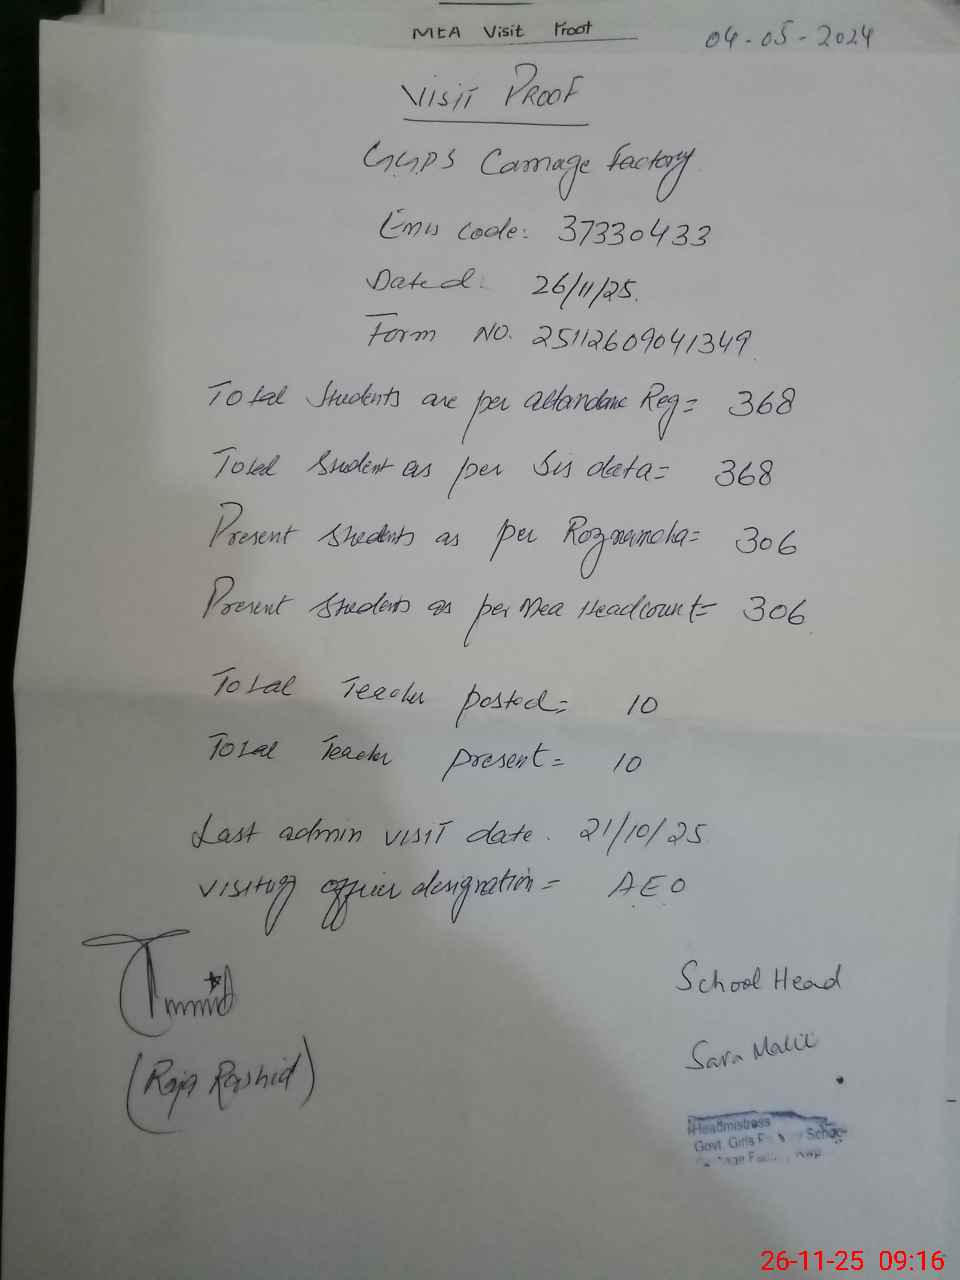 MEA Visit Proof
04-05-2024
VISIT PROOF
GGPS Carriage Factory
Emis Code: 37330433
Dated: 26/11/25.
Form NO. 25112609041349
Total Students are per attandanc Reg= 368
Total Student as per Sis data= 368
Present Students as per Roznamcha= 306
Present Students as per Mea Headcount= 306
Total Teacher posted= 10
Total Teacher present= 10
Last admin visit date. 21/10/25
Visiting officer designation= AEO
School Head
(Raja Rashid)
Sara Malik
Headmistress
Govt. Girls School
26-11-25 09:16